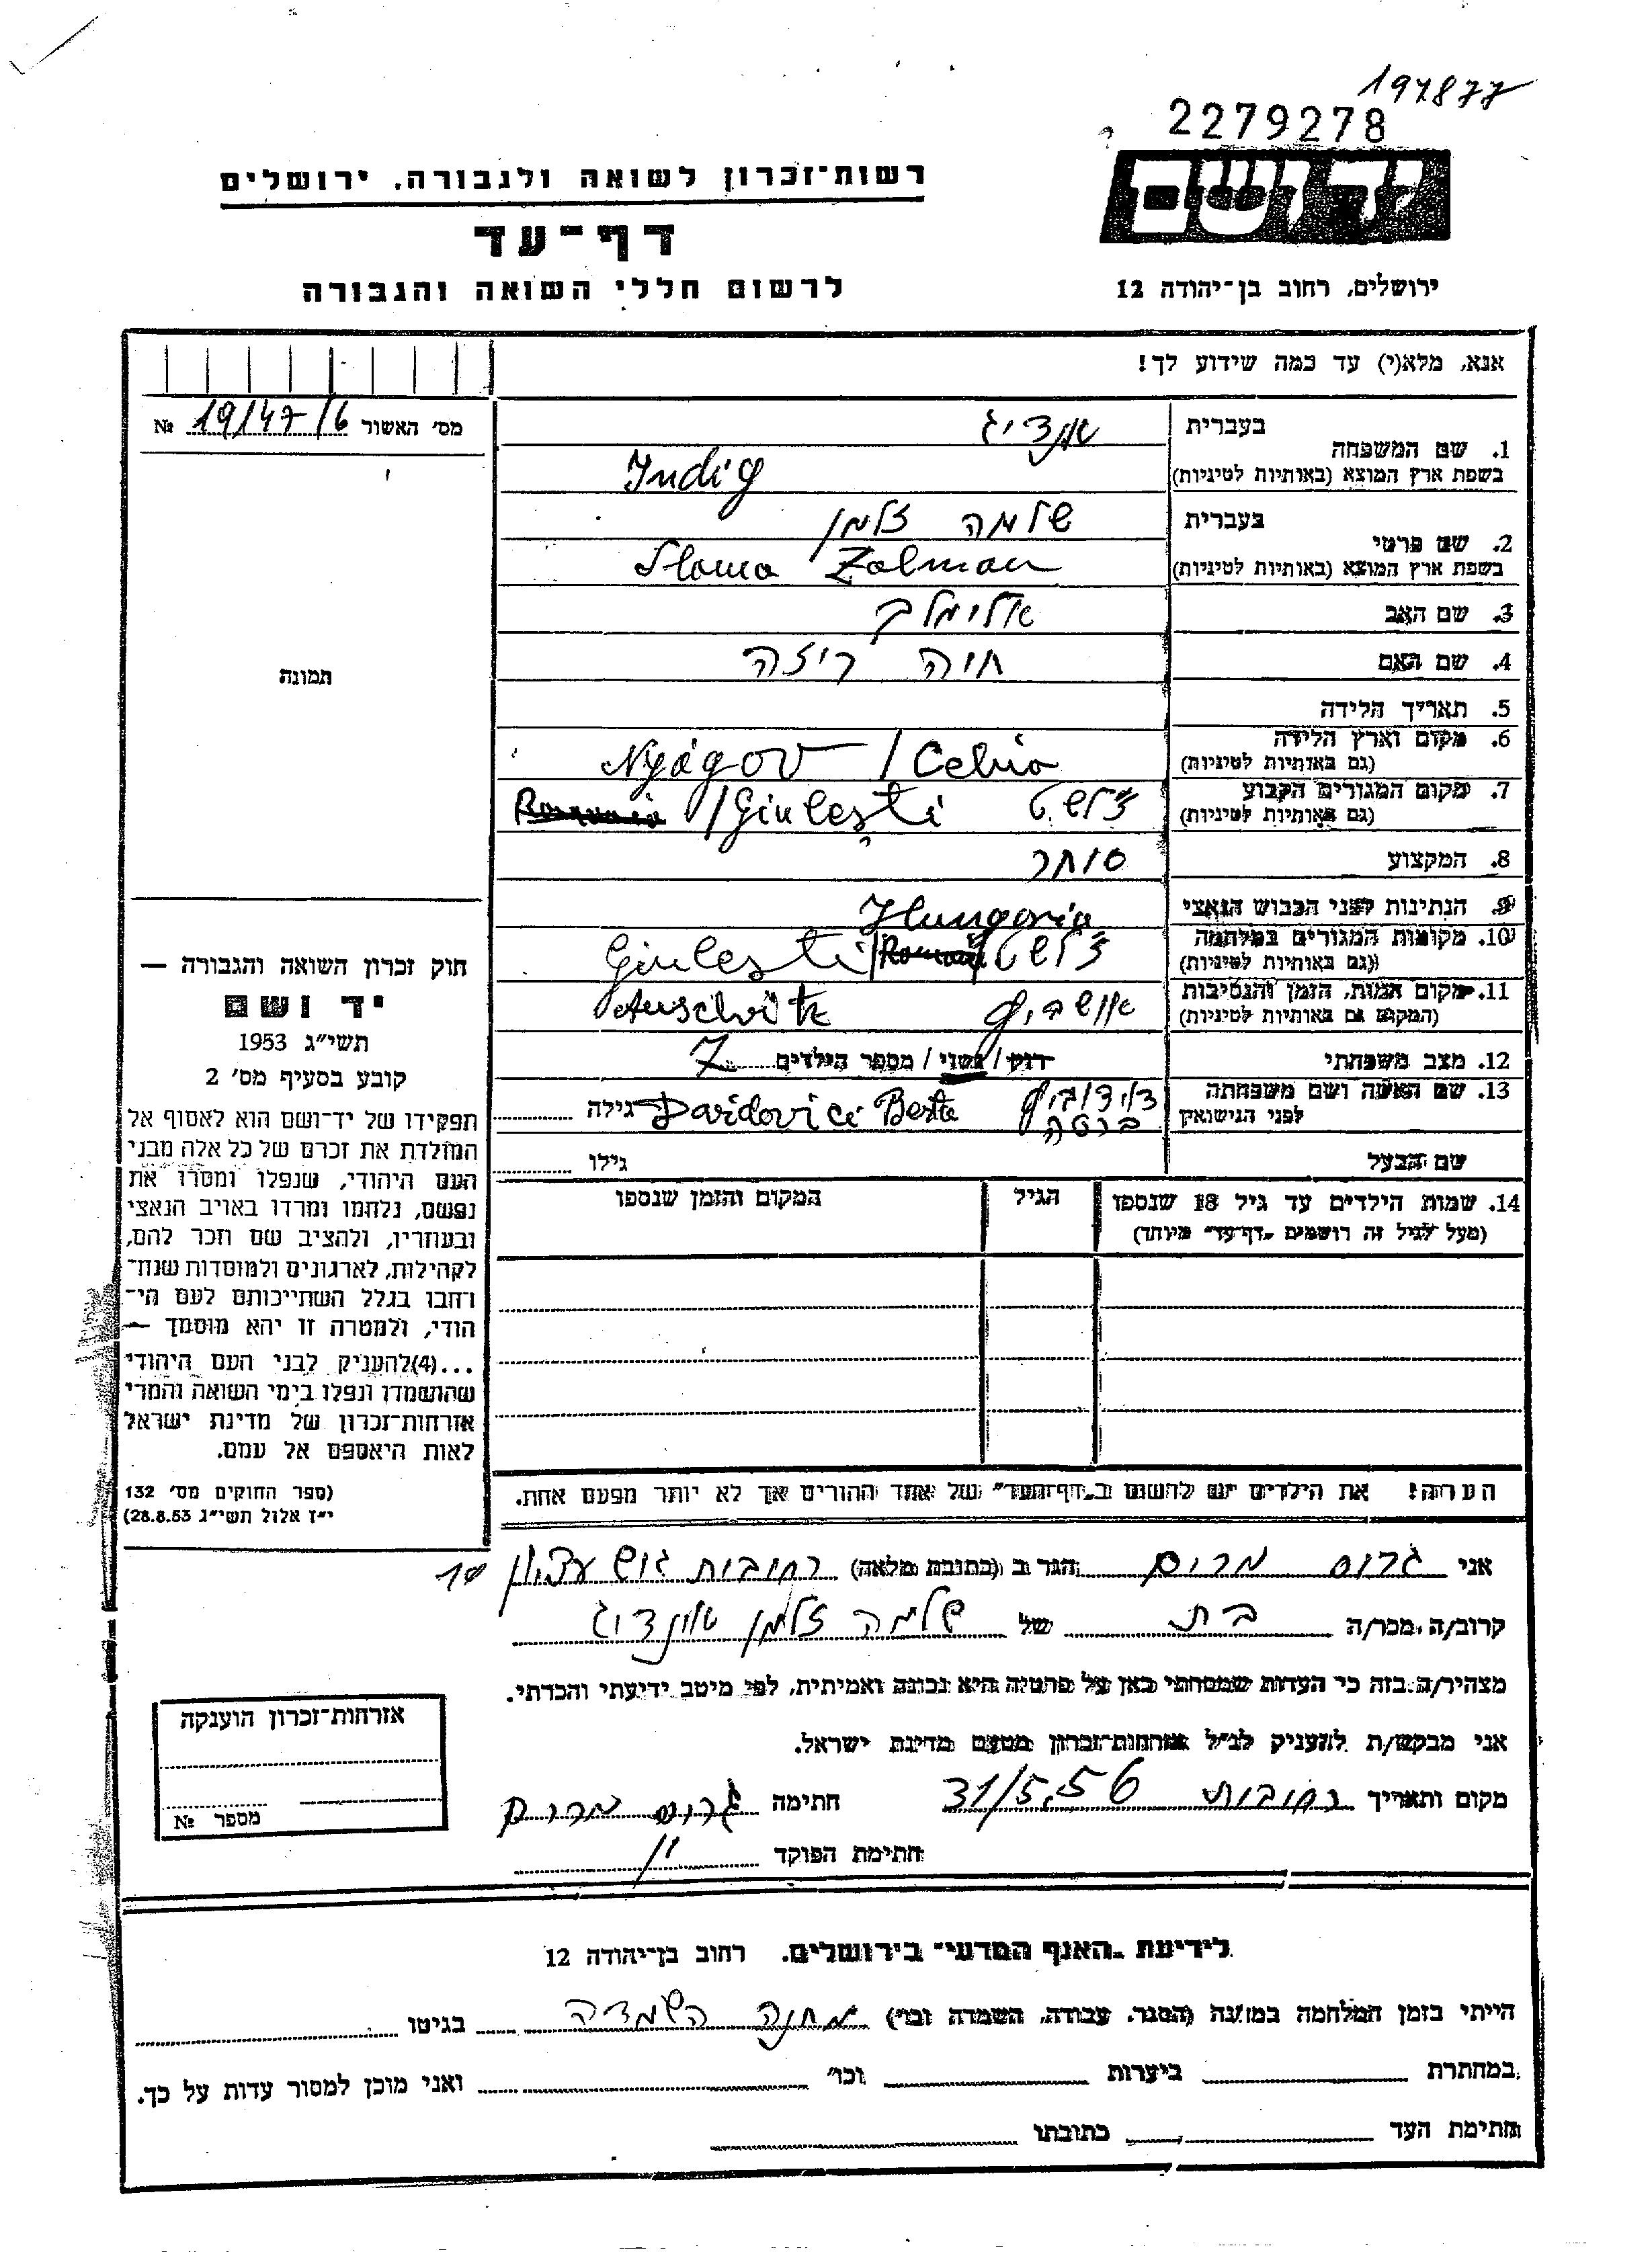 197877
2279278
יד ושם
רשות־זכרון לשואה ולגבורה, ירושלים
דף־עד
לרשום חללי השואה והגבורה
ירושלים, רחוב בן־יהודה 12
אנא, מלא(י) עד כמה שידוע לך!
מס' האשור 19/47/6 №
תמונה
1. שם המשפחה
בעברית אינדיג
בשפת ארץ המוצא (באותיות לטיניות) Indig
2. שם פרטי
בעברית שלמה זלמן
בשפת ארץ המוצא (באותיות לטיניות) Sloma Zalman
3. שם האב אלימלך
4. שם האם חיה ריזה
5. תאריך הלידה
6. מקום וארץ הלידה Nyágov / Cehia
(גם באותיות לטיניות)
7. מקום המגורים הקבוע Giulești /
(גם באותיות לטיניות)
8. המקצוע סוחר
9. הנתינות לפני הכבוש הנאצי Hungaria
10. מקומות המגורים במלחמה Giulesti /
(גם באותיות לטיניות)
11. מקום המות, הזמן והנסיבות אושביץ Auschvitz
(המקום גם באותיות לטיניות)
12. מצב משפחתי רווק / נשוי / מספר הילדים 7
13. שם האשה ושם משפחתה דוידוביץ ברטה Davidovici Berta גילה
לפני הנישואין
שם הבעל גילו
14. שמות הילדים עד גיל 18 שנספו הגיל המקום והזמן שנספו
(מעל לגיל זה רושמים "דף־עד" מיוחד)
הערה! את הילדים יש לרשום ב"דף־העד" של אחד ההורים אך לא יותר מפעם אחת.
חוק זכרון השואה והגבורה —
יד ושם
תשי"ג 1953
קובע בסעיף מס' 2
תפקידו של יד־ושם הוא לאסוף אל
המולדת את זכרם של כל אלה מבני
העם היהודי, שנפלו ומסרו את
נפשם, נלחמו ומרדו באויב הנאצי
ובעוזריו, ולהציב שם וזכר להם,
לקהילות, לארגונים ולמוסדות שנח־
רבו בגלל השתייכותם לעם הי־
הודי, ולמטרה זו יהא מוסמך —
...(4)להעניק לבני העם היהודי
שהושמדו ונפלו בימי השואה והמרי
אזרחות־זכרון של מדינת ישראל
לאות היאספם אל עמם.
(ספר החוקים מס' 132
י"ז אלול תשי"ג 28.8.53)
אני גרוס מרים הגר ב (כתובת מלאה) רחובות גוש עציון 10
קרוב/ה מכר/ה בת של שלמה זלמן אינדיג
מצהיר/ה בזה כי העדות שמסרתי כאן על פרטיה היא נכונה ואמיתית, לפי מיטב ידיעתי והכרתי.
אני מבקש/ת להעניק לנ"ל אזרחות־זכרון מטעם מדינת ישראל.
מקום ותאריך רחובות 31/5.56 חתימה גרוס מרים
חתימת הפוקד
אזרחות־זכרון הוענקה
מספר №
לידיעת "האגף המדעי" בירושלים. רחוב בן־יהודה 12
הייתי בזמן המלחמה במחנה (הסגר, עבודה, השמדה וכו') מחנה השמדה בגיטו
במחתרת ביערות וכו' ואני מוכן למסור עדות על כך.
חתימת העד כתובתו